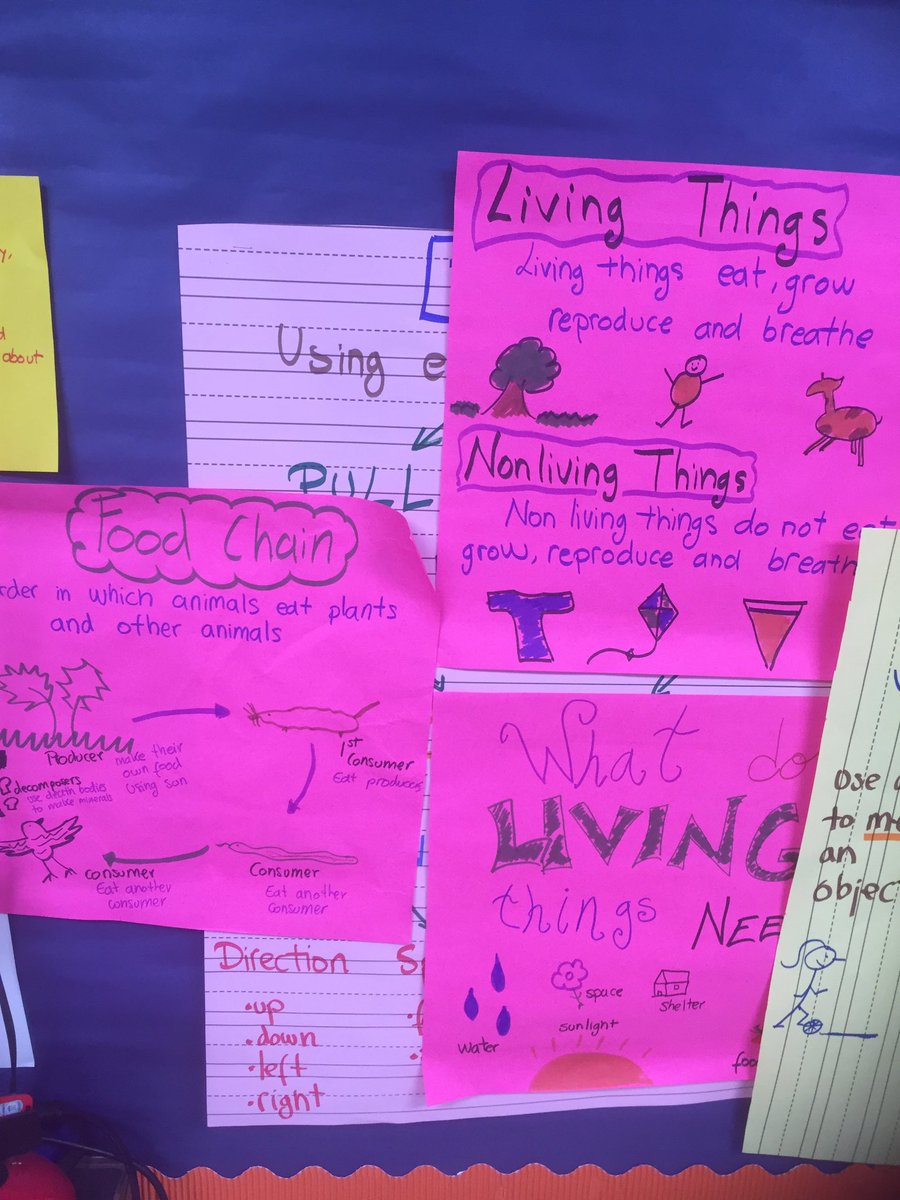 Living Things
Living things eat, grow
reproduce and breathe
Nonliving Things
Non living things do not eat
grow, reproduce and
Using
PULL
Food Chain
in which animals eat plants
and other animals
Producer make their
own food
using sun
decomposers
use bodies
to make minerals
1st
Consumer
Eat
Consumer
Eat another
consumer
consumer
Eat another
consumer
What do
LIVING
things
water
space
sunlight
shelter
Direction
•up
•down
•left
•right
about
Use
to
an